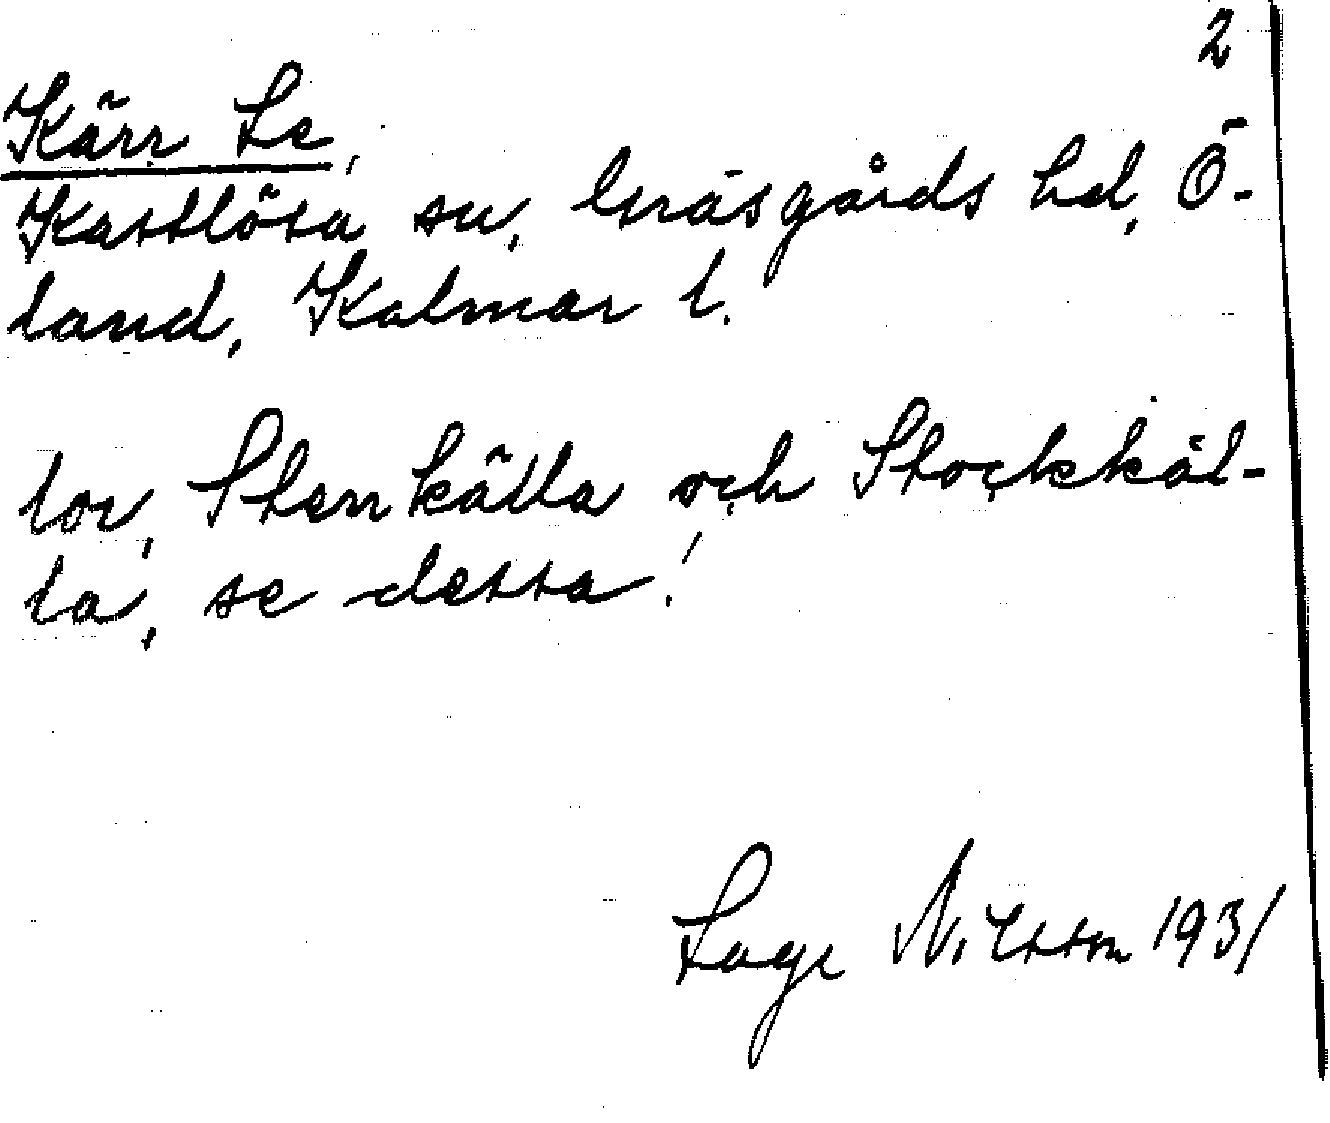 2
Kärr Se,
Kastlösa sn, Gräsgårds hd, Ö-
land, Kalmar l.
lor, Stenkälla och Stockkäl-
la, se dessa!
Sage Nilsson 1931